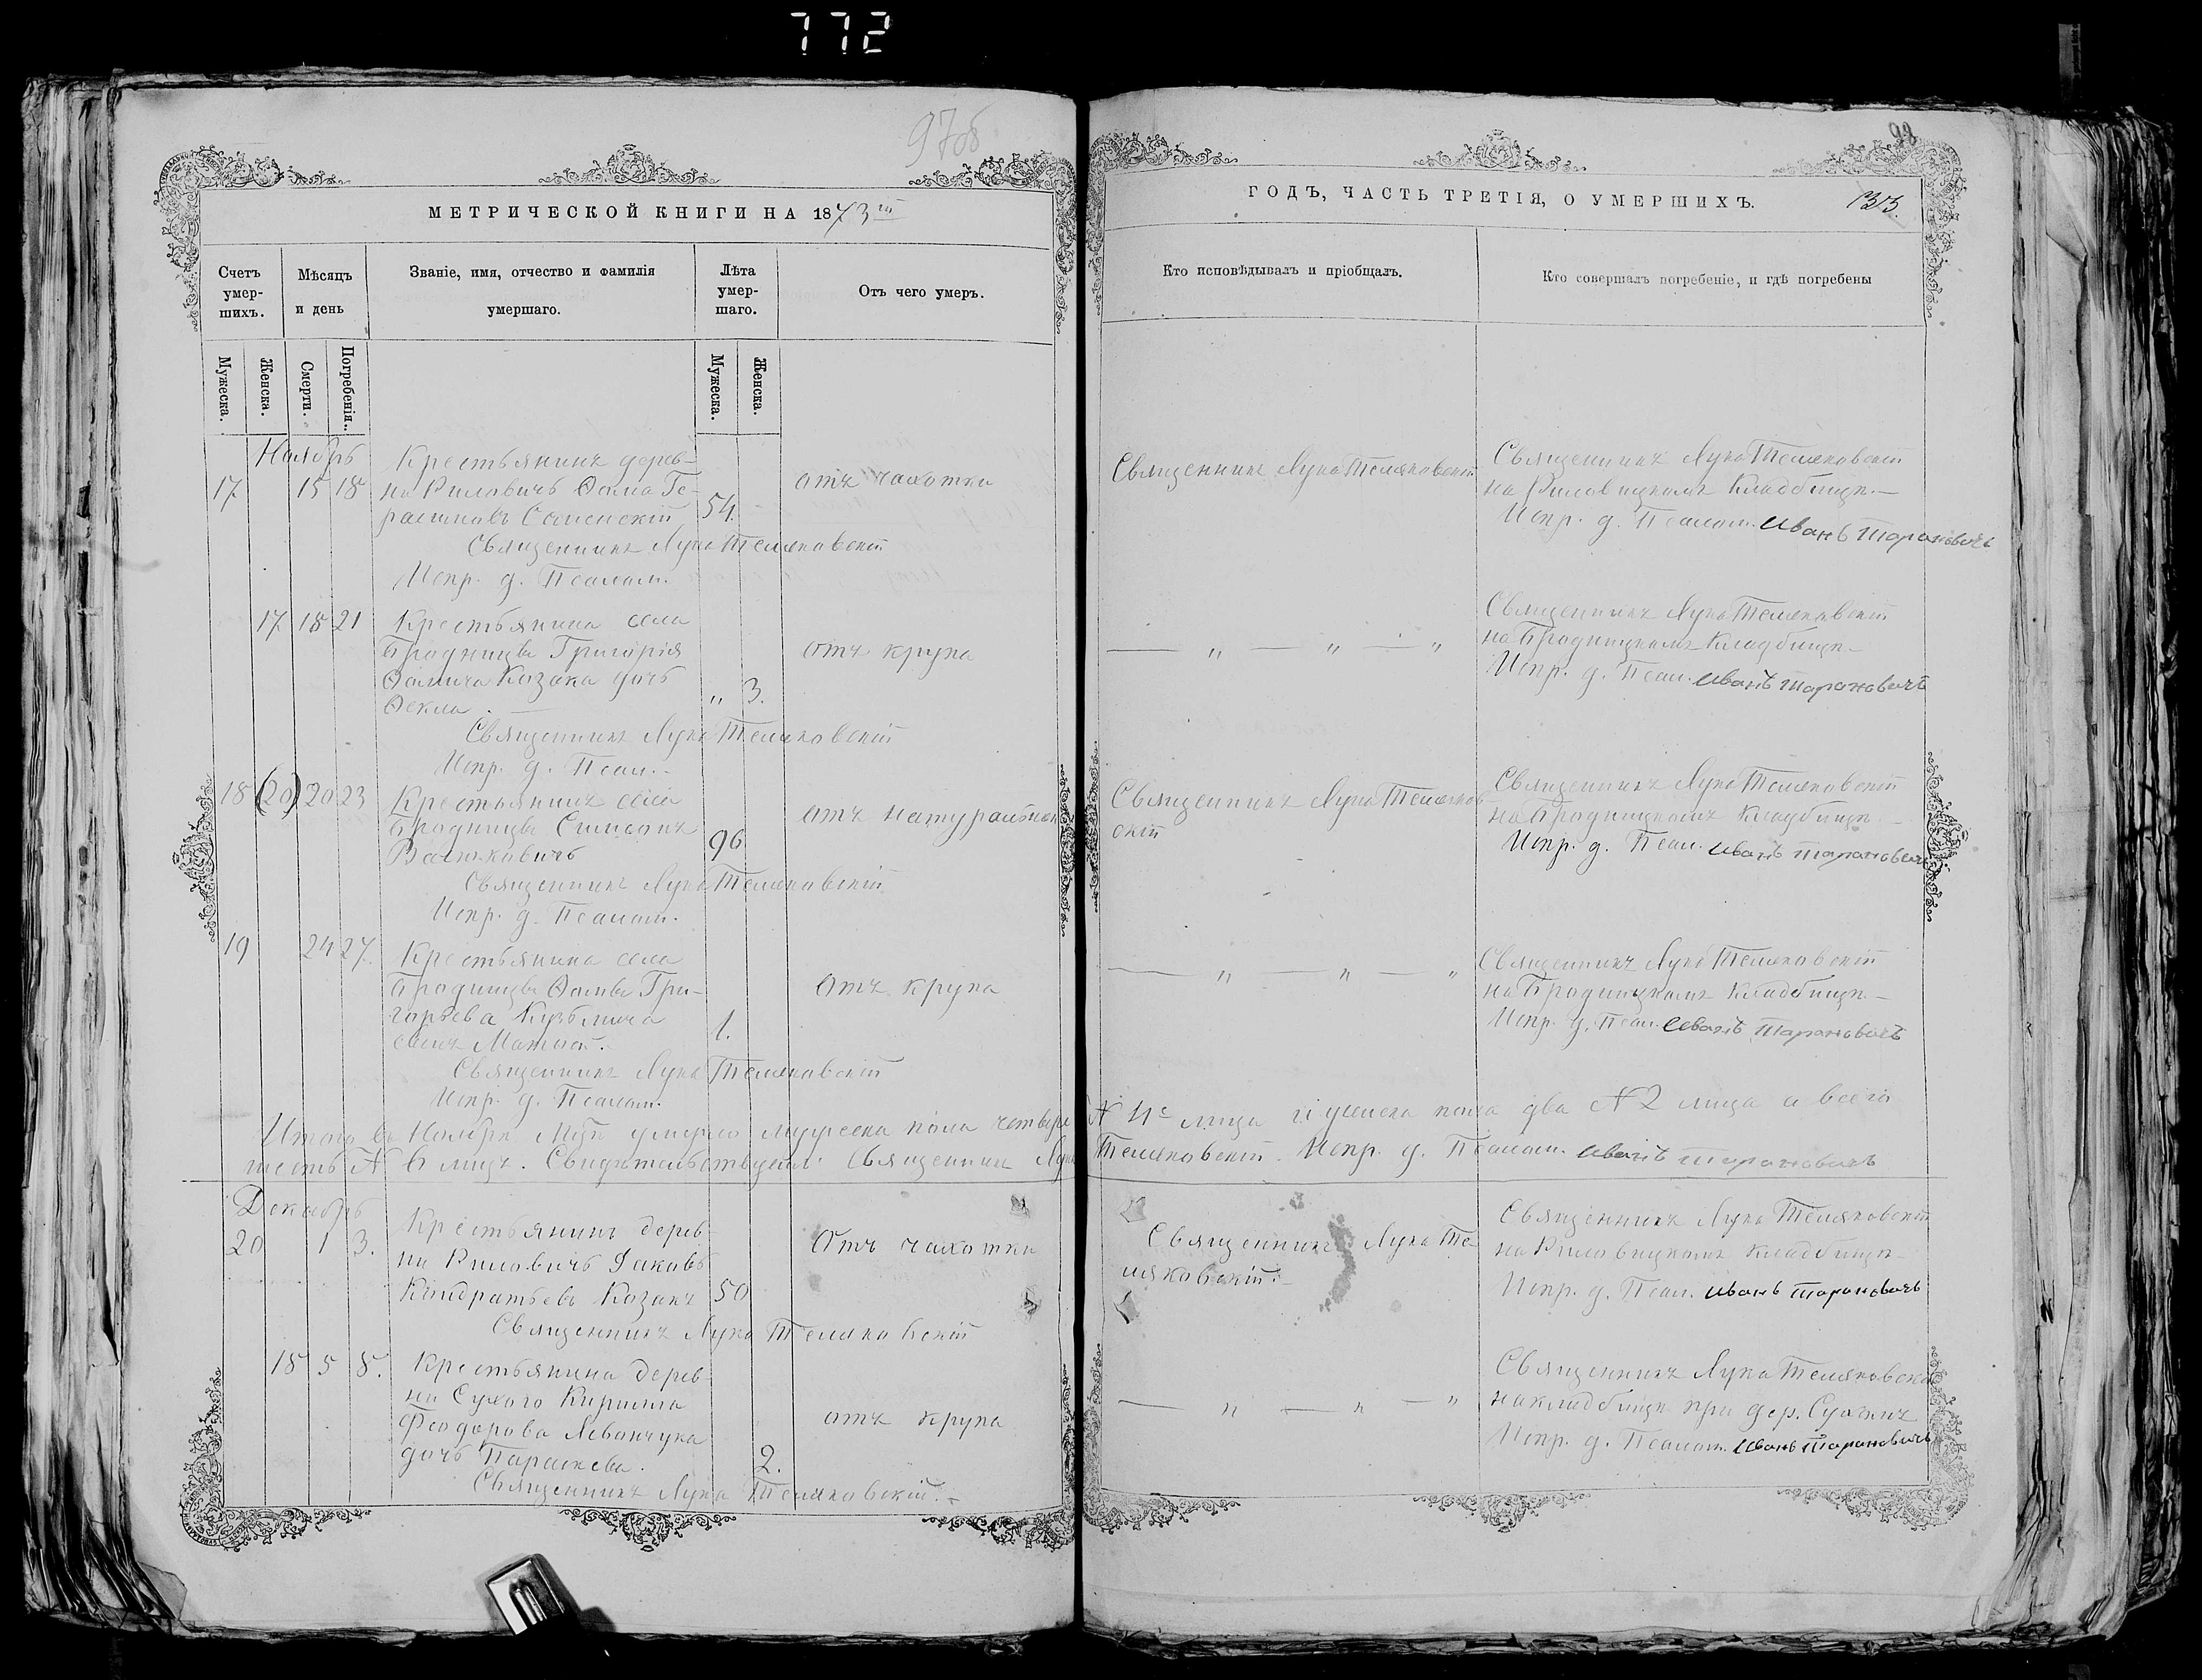 772
97об
98
МЕТРИЧЕСКОЙ КНИГИ НА 1873 й
Счетъ умер-шихъ.
Мѣсяцъ и день
Званіе, имя, отчество и фамилія умершаго.
Лѣта умер-шаго.
Отъ чего умеръ.
Мужеска.
Женска.
Смерти.
Погребенія.
Мужеска.
Женска.
Ноябрь
17 15 18
Крестьянинъ дерев-
ни Риловичъ Ѳома Ге-
расимовъ 54.
отъ чахотки
Священникъ Лука Теляковскій
Испр. д. Псалом.
17 18 21
Крестьянина села
Бродницы Григорія
Ѳомича Козака дочь
Ѳекла „ 3.
отъ крупа
Священникъ Лука Теляковскій
Испр. д. Псал.
18 (20) 20 23
Крестьянинъ села
Бродницы Симеонъ
96
отъ натуральной
Священникъ Лука Теляковскій
Испр. д. Псалом.
19 24 27.
Крестьянина села
Бродницы Ѳомы Гри-
горьева Кузьмича
сынъ 1.
отъ крупа
Священникъ Лука Теляковскій
Испр. д. Псалом.
Декабрь
20 1 3.
Крестьянинъ дерев-
ни Риловичъ Іаковъ
Кондратьевъ Козакъ 50
Отъ чахотки
Священникъ Лука Теляковскій
18 5 8.
Крестьянина дерев-
ни Сухого Кирилла
Феодорова Леванчука
дочь Параскева. 2.
отъ крупа
Священникъ Лука Теляковскій.
ГОДЪ, ЧАСТЬ ТРЕТІЯ, О УМЕРШИХЪ.
Кто исповѣдывалъ и пріобщалъ.
Кто совершалъ погребеніе, и гдѣ погребены
Священникъ Лука Теляковскій
Священникъ Лука Теляковскій
на Риловицкомъ кладбищѣ.
Испр. д. Псалом. Иванъ Тарановичъ
„ „ „
Священникъ Лука Теляковскій
на Бродницкомъ кладбищѣ
Испр. д. Псал. Иванъ Тарановичъ
Священникъ Лука Теляков
скій
Священникъ Лука Теляковскій
на Бродницкомъ кладбищѣ
Испр. д. Псал. Иванъ Тарановичъ
„ „ „
Священникъ Лука Теляковскій
на Бродницкомъ кладбищѣ
Испр. д. Псал. Иванъ Тарановичъ
Итого въ Ноябрѣ умерло мужеска пола четыре № 4 лица и женска пола два № 2 лица а всего
шесть № 6 лицъ. Священникъ Лука Теляковскій. Испр. д. Псалом. Иванъ Тарановичъ
Священникъ Лука Те-
ляковскій.
Священникъ Лука Теляковскій
на Риловицкомъ кладбищѣ
Испр. д. Псал. Иванъ Тарановичъ
„ „ „
Священникъ Лука Теляковскій
на кладбищѣ при дер. Сухомъ
Испр. д. Псалом. Иванъ Тарановичъ